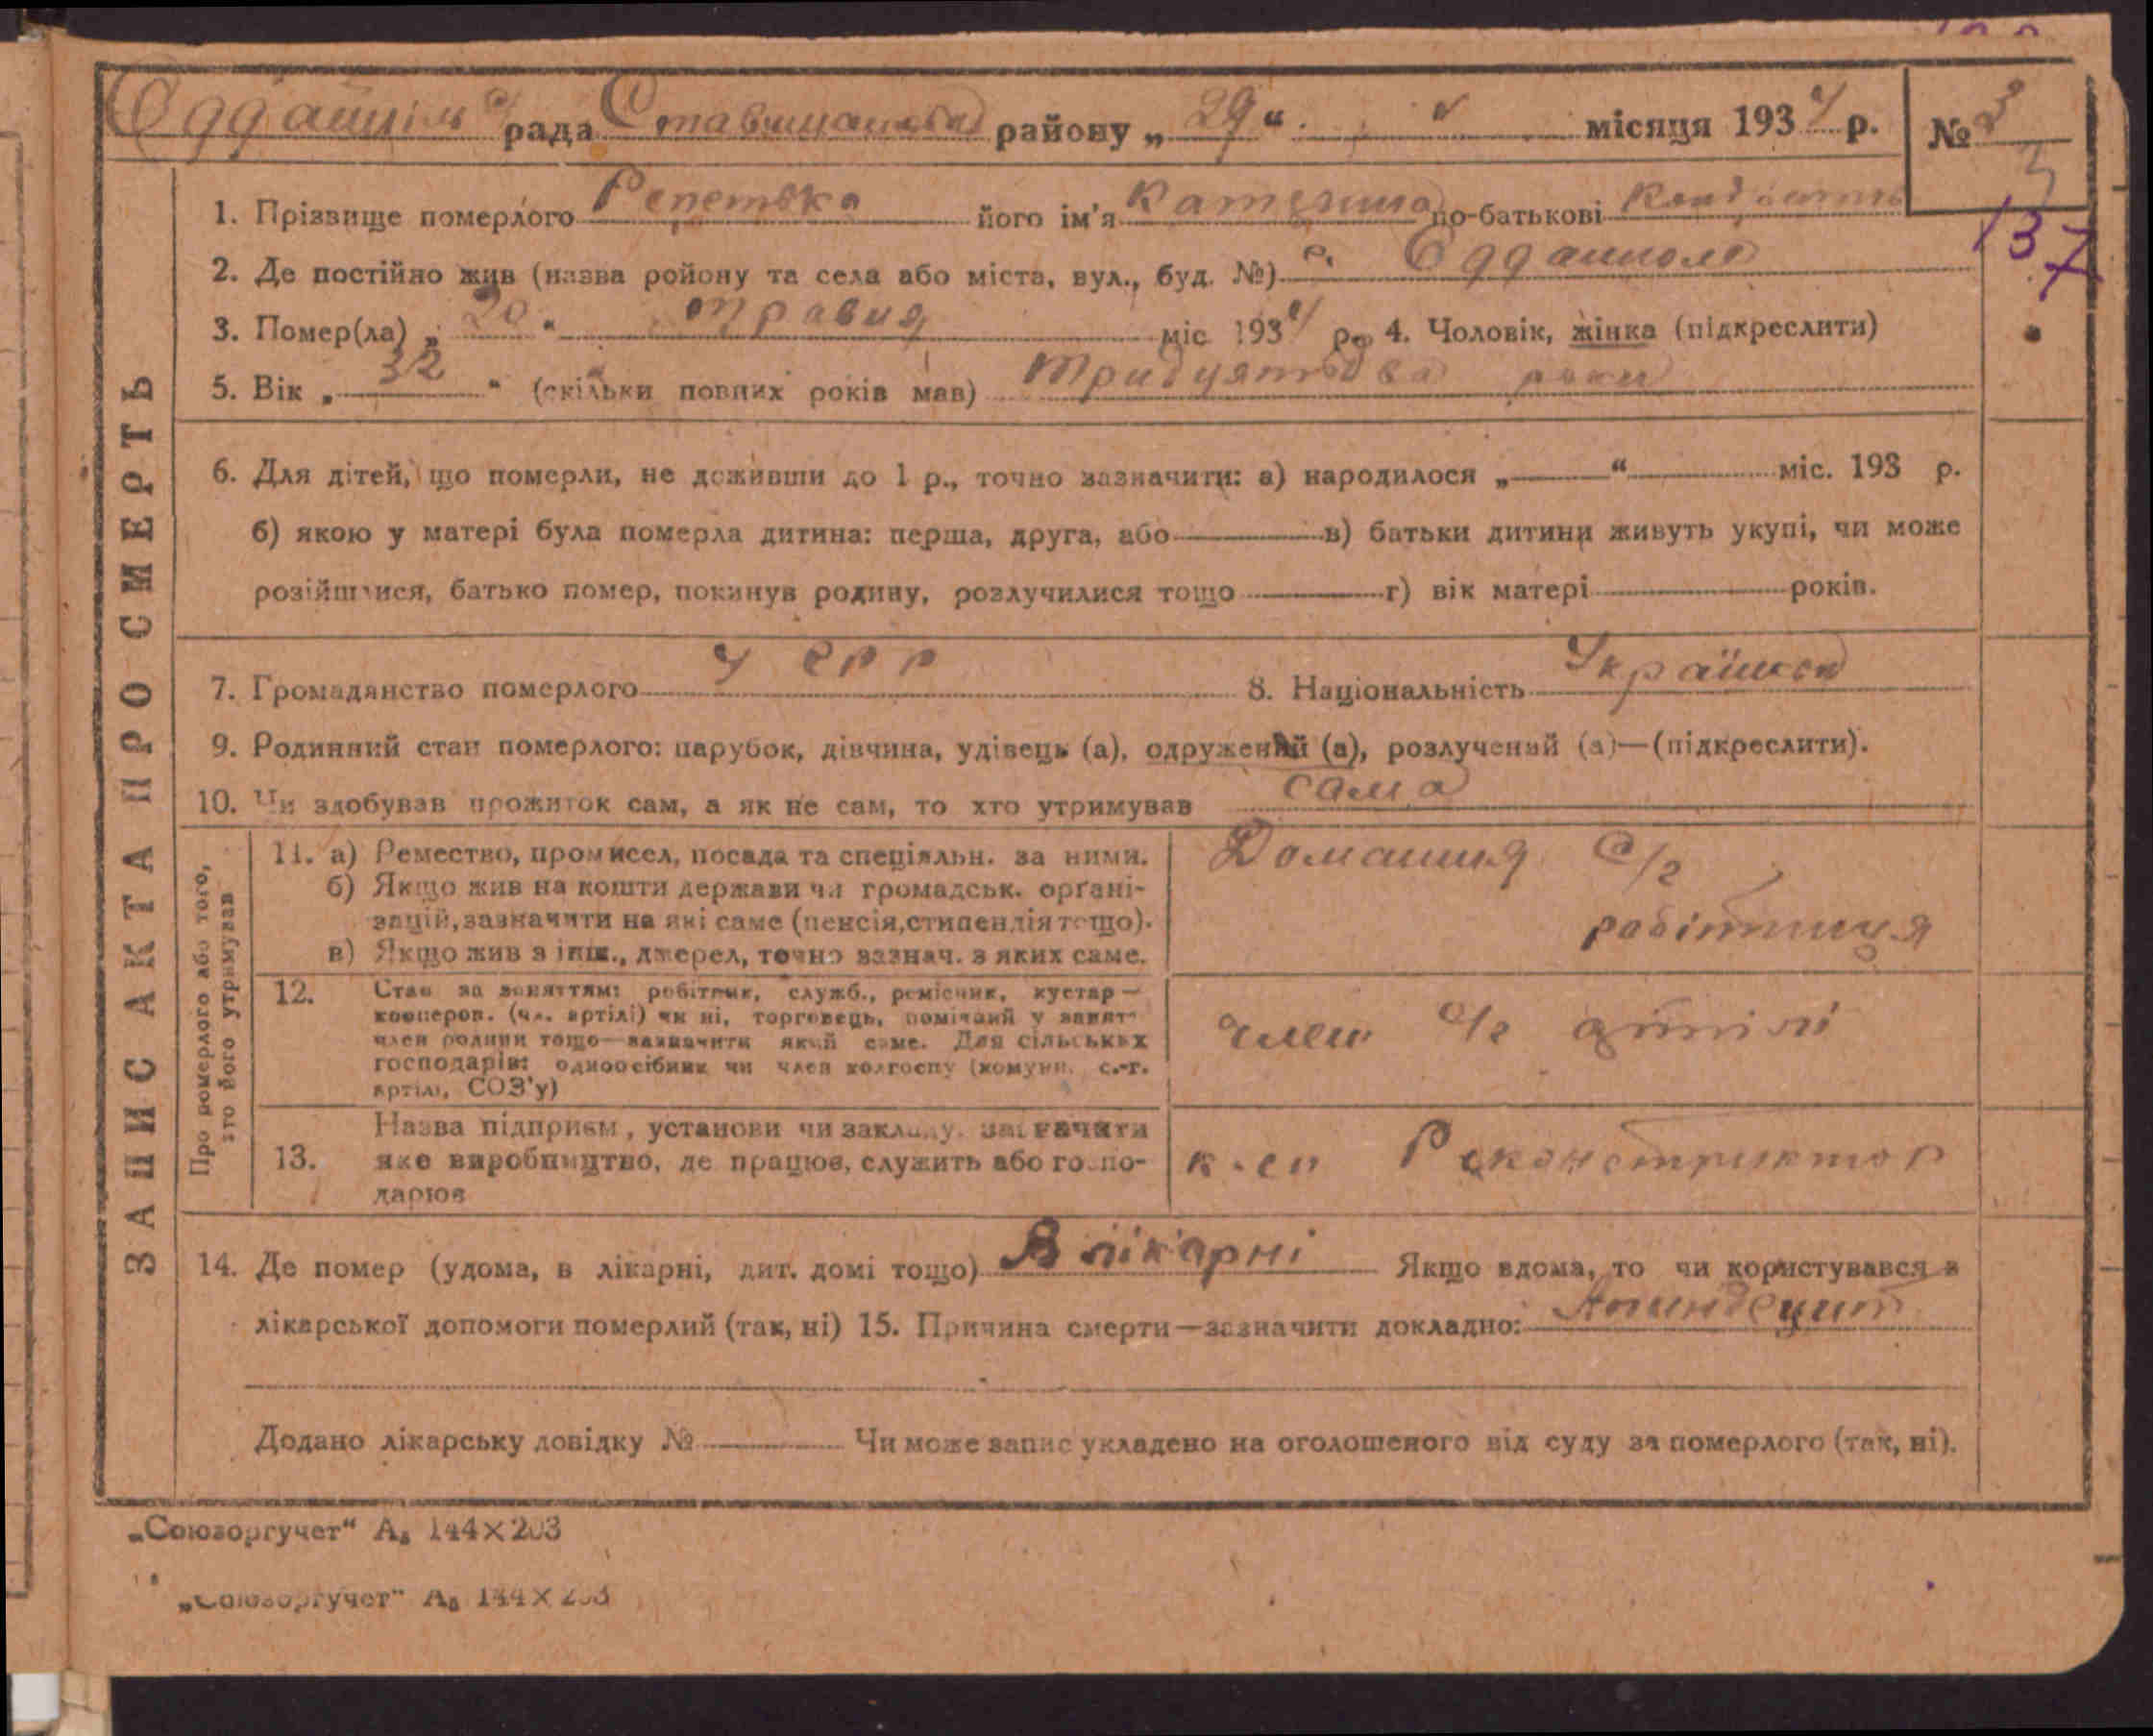 рада Ставищанська району „ 29 “ V місяця 1934 р. № 3
137
ЗАПИС АКТА ПРО СМЕРТЬ
1. Прізвище померлого Репетька його ім'я Катерина по-батькові
2. Де постійно жив (назва ройону та села або міста, вул., буд. №) с.
3. Помер(ла) „ 20 “ травня міс 1934 р. 4. Чоловік, жінка (підкреслити)
5. Вік „ 32 “ (скільки повних років мав) тридцять два роки
6. Для дітей, що померли, не доживши до 1 р., точно зазначити: а) народилося „ “ міс. 193 р.
б) якою у матері була померла дитина: перша, друга, або в) батьки дитини живуть укупі, чи може
розійшлися, батько помер, покинув родину, розлучилися тощо г) вік матері років.
7. Громадянство померлого УСРР 8. Національність
9. Родинний стан померлого: парубок, дівчина, удівець (а), одружений (а), розлучений (а)—(підкреслити).
10. Чи здобував прожиток сам, а як не сам, то хто утримував сама
Про померлого або того, хто його утримував
11. а) Ремество, промисел, посада та спеціяльн. за ними.
б) Якщо жив на кошти держави чи громадськ. орґані-
зацій, зазначити на які саме (пенсія, стипендія тощо).
в) Якщо жив з інш., джерел, точно зазнач. з яких саме.
Домашня с/г
робітниця
12. Стан за заняттям: робітник, служб., ремісник, кустар—
кооперов. (чл. артілі) чи ні, торговець, помічний у занят.
член родини тощо—зазначити який саме. Для сільських
господарів: одноосібник чи член колгоспу (комуни, с.-г.
артілі, СОЗ'у)
член с/г артілі
13. Назва підприєм, установи чи закладу, зазначити
яке виробництво, де працює, служить або госпо-
дарює
к-сп Реконструктор
14. Де помер (удома, в лікарні, дит. домі тощо) В лікарні Якщо вдома, то чи користувався з
лікарської допомоги померлий (так, ні) 15. Причина смерти—зазначити докладно: Апиндецит
Додано лікарську довідку № Чи може запис укладено на оголошеного від суду за померлого (так, ні).
„Союзоргучет“ А₅ 144×203
„Союзоргучет“ А₅ 144×203